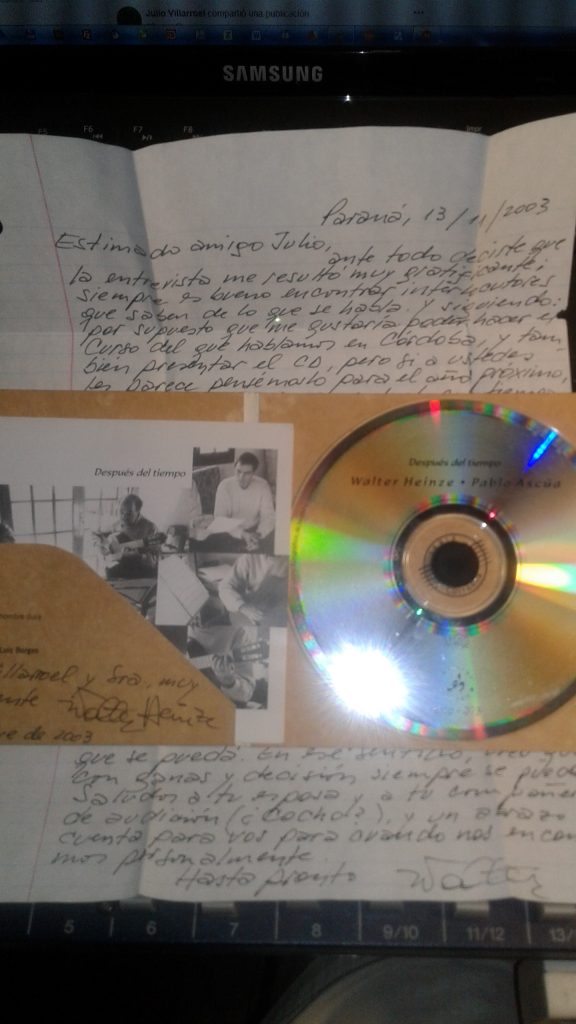 Julio Villarroel compartió una publicación
SAMSUNG
F5 F6 F7 F8
Impr
Paraná, 13/11/2003
Estimado amigo Julio,
ante todo decirte que
la entrevista me resultó muy gratificante;
siempre es bueno encontrar interlocutores
que saben de lo que se habla. Y siguiendo:
por supuesto que me gustaría poder hacer el
Curso del que hablamos en Córdoba, y tam
bien presentar el CD, pero si a ustedes
les parece pensémoslo para el año próximo,
tiempo
Después del tiempo
Después del tiempo
Walter Heinze • Pablo Ascúa
Luis Borges
Villarroel y Sra., muy
Walter Heinze
re de 2003
que se pueda. En ese sentido, creo que
con ganas y decisión siempre se puede
Saludos a tu esposa y a tu compañero
de audición (¿Cacho?), y un abrazo
cuenta para vos para cuando nos encon
mos personalmente
Hasta pronto Walter
5 6 7 8 9/10 11/12 13/